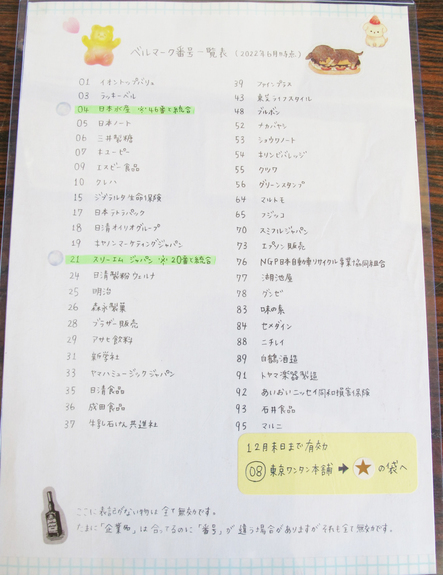 ベルマーク番号一覧表(2022年6月時点)
01 イオントップバリュ
03 ラッキーベル
04 日本水産 ※46番と統合
05 日本ノート
06 三井製糖
07 キユーピー
09 エスビー食品
10 クレハ
15 ジブラルタ生命保険
17 日本テトラパック
18 日清オイリオグループ
19 キヤノンマーケティングジャパン
21 スリーエム ジャパン ※20番と統合
24 日清製粉ウェルナ
25 明治
26 森永製菓
28 ブラザー販売
29 アサヒ飲料
31 新学社
33 ヤマハミュージックジャパン
35 日清食品
36 成田食品
37 牛乳石けん共進社
39 ファインプラス
43 東芝ライフスタイル
48 ブルボン
52 ナカバヤシ
53 ショウワノート
54 キリンビバレッジ
55 クツワ
56 グリーンスタンプ
64 マルトモ
65 フジッコ
70 スミフルジャパン
73 エプソン販売
76 NGP日本自動車リサイクル事業協同組合
77 湖池屋
78 グンゼ
83 味の素
84 セメダイン
88 ニチレイ
89 白鶴酒造
91 トヤマ楽器製造
92 あいおいニッセイ同和損害保険
93 石井食品
95 マルニ
12月末日まで有効
08 東京ワンタン本舗 ➡ ★ の袋へ
ここに表記がない物は全て無効です。
たまに「企業名」は合ってるのに「番号」が違う場合がありますがそれも全て無効です。